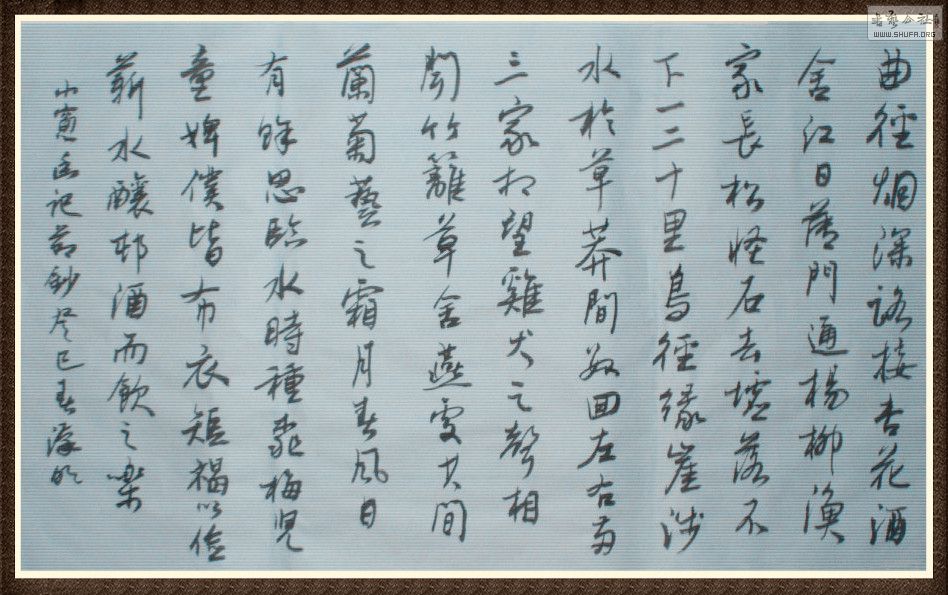 曲徑烟深路接杏花酒
舍江日落門通楊柳漁
家長松怪石去墟落不
下一二十里鳥徑緣崖涉
水於草莽間數回左右兩
三家相望雞犬之聲相
聞竹籬草舍燕處其間
蘭菊藝之霜月春風日
有餘思臨水時種桃梅兒
童婢僕皆布衣短褐以給
薪水釀村酒而飲之案
小窗幽記節鈔癸巳春
书艺公社
WWW.SHUFA.ORG